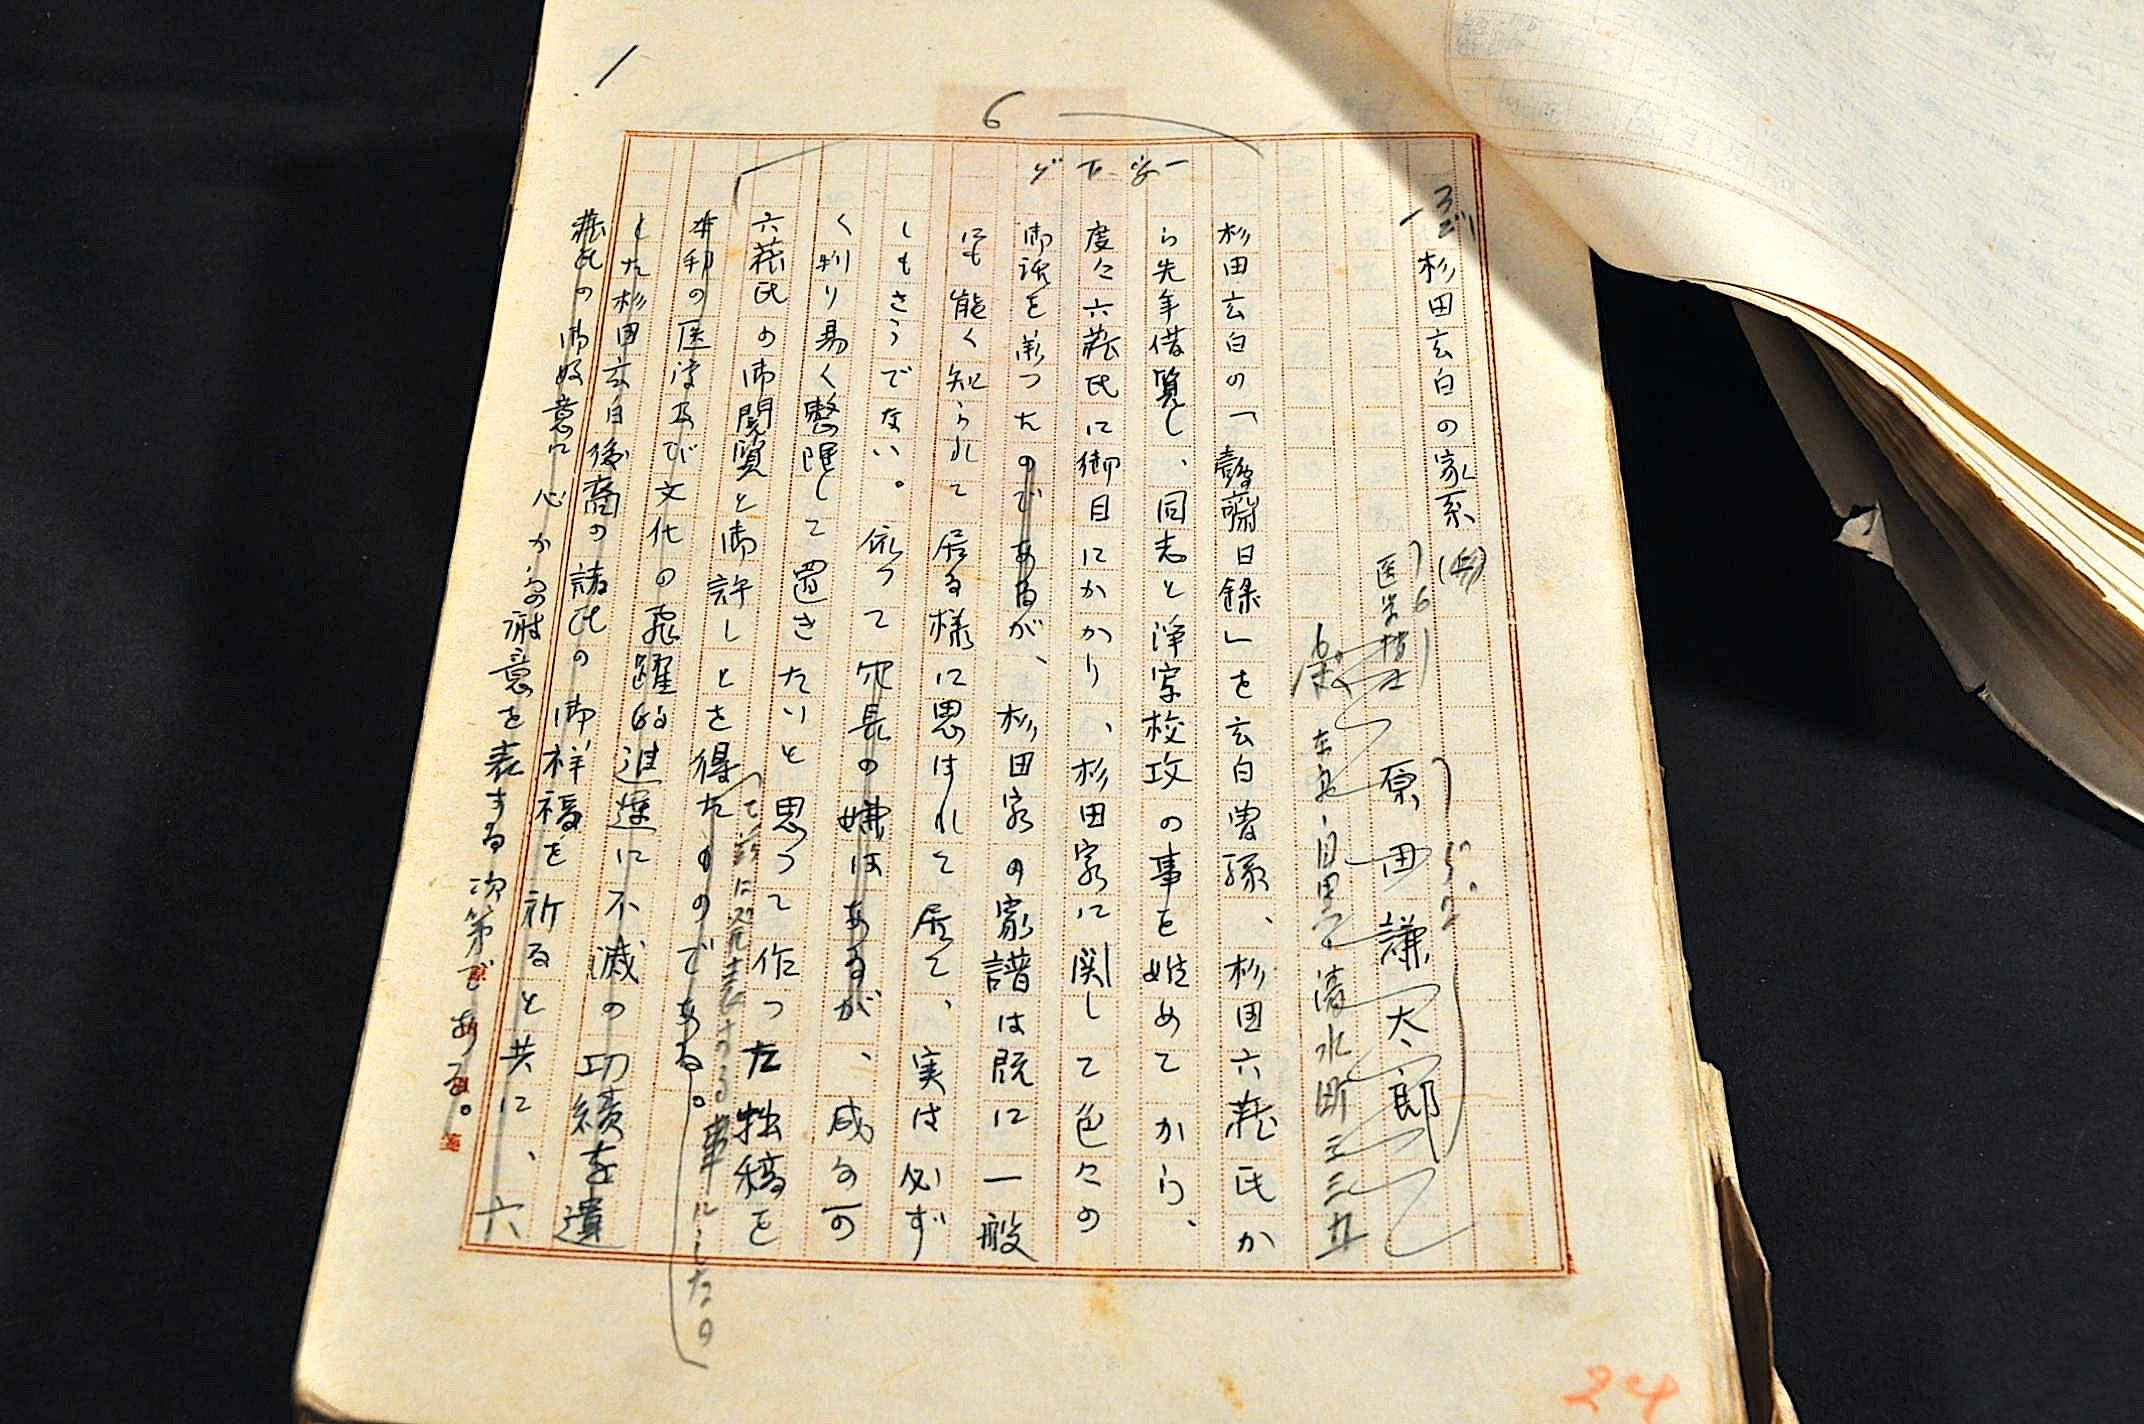 杉田玄白の家系
医学博士
原田謙太郎
東京・目黒・清水町三三五
6
一字下ゲ
杉田玄白の「鷧齋日録」を玄白曽孫、杉田六蔵氏か
ら先年借覧し、同志と浄写校攻の事を始めてから、
度々六蔵氏に御目にかかり、杉田家に関して色々の
御話を承つたのであるが、杉田家の家譜は既に一般
にも能く知られて居る様に思はれて居て、実は必ず
しもさうでない。依つて冗長の嫌はあるが、成る可
く判り易く整理して置きたいと思つて作つた拙稿を
六蔵氏の御閲覧と御許しとを得たものである。
て茲に発表する事にしたの
本邦の医学及び文化の飛躍的進運に不滅の功績を遺
した杉田玄白後裔の諸氏の御祥福を祈ると共に、六
蔵氏の御好意に心からの謝意を表する次第である。
24